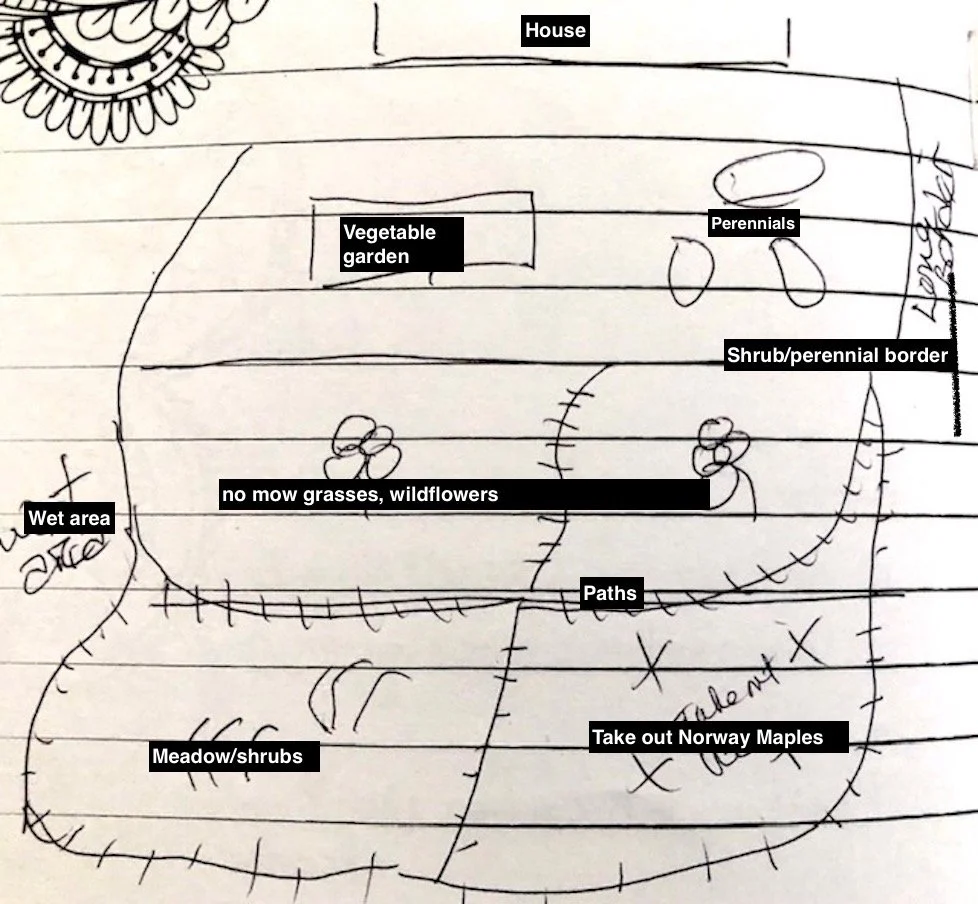 House
Perennials
Vegetable
garden
Long
Border
Shrub/perennial border
no mow grasses, wildflowers
Wet area
area
Paths
Take out
Take out Norway Maples
Meadow/shrubs